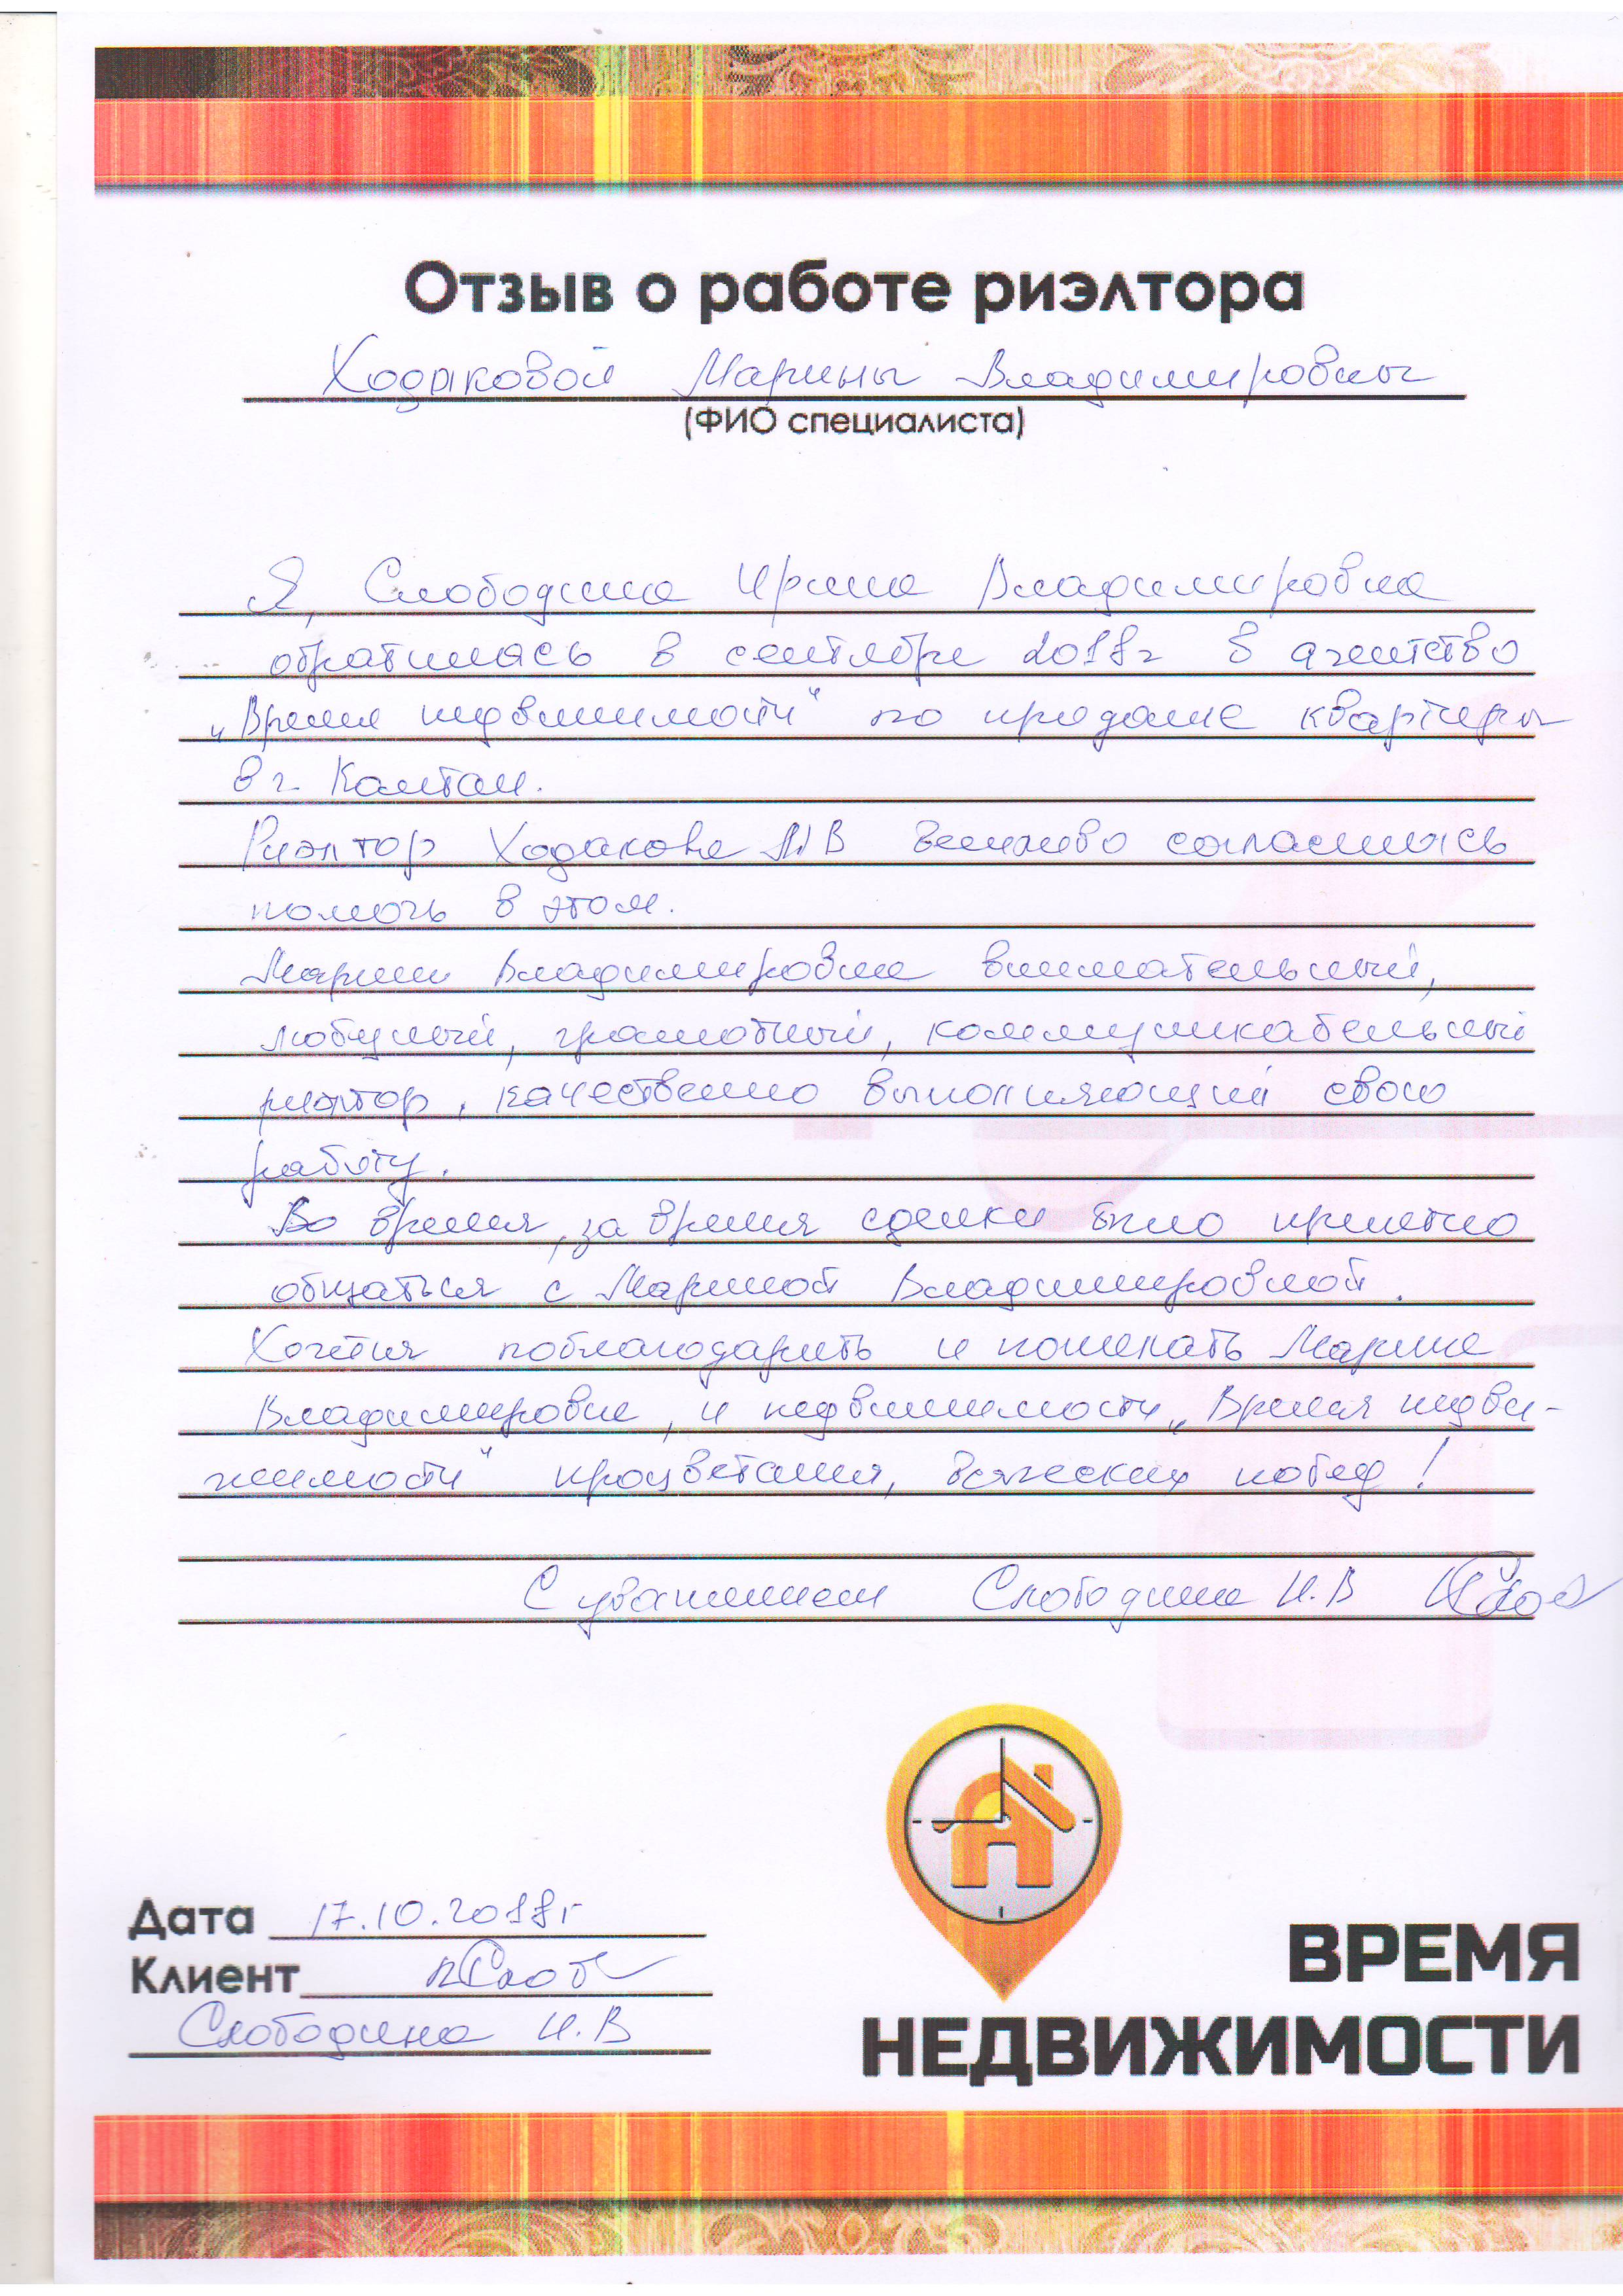 Отзыв о работе риэлтора
Ходаковой Марины Владимировны
(ФИО специалиста)
Я, Слободина Ирина Владимировна
обратилась в сентябре 2018г в агентство
„Время недвижимости“ по продаже квартиры
в г. Калтан.
Риэлтор Ходакова М В вежливо согласилась
помочь в этом.
Марина Владимировна внимательный,
грамотный, коммуникабельный
риэлтор, качественно выполняющий свою
работу.
Во время, за время сделки было приятно
общаться с Мариной Владимировной.
Хочется поблагодарить и пожелать Марине
Владимировне, и недвижимости „Время недви-
жимости“ процветания, всяческих побед!
С уважением Слободина И.В
Дата 17.10.2018г
Клиент
Слободина И.В
ВРЕМЯ
НЕДВИЖИМОСТИ